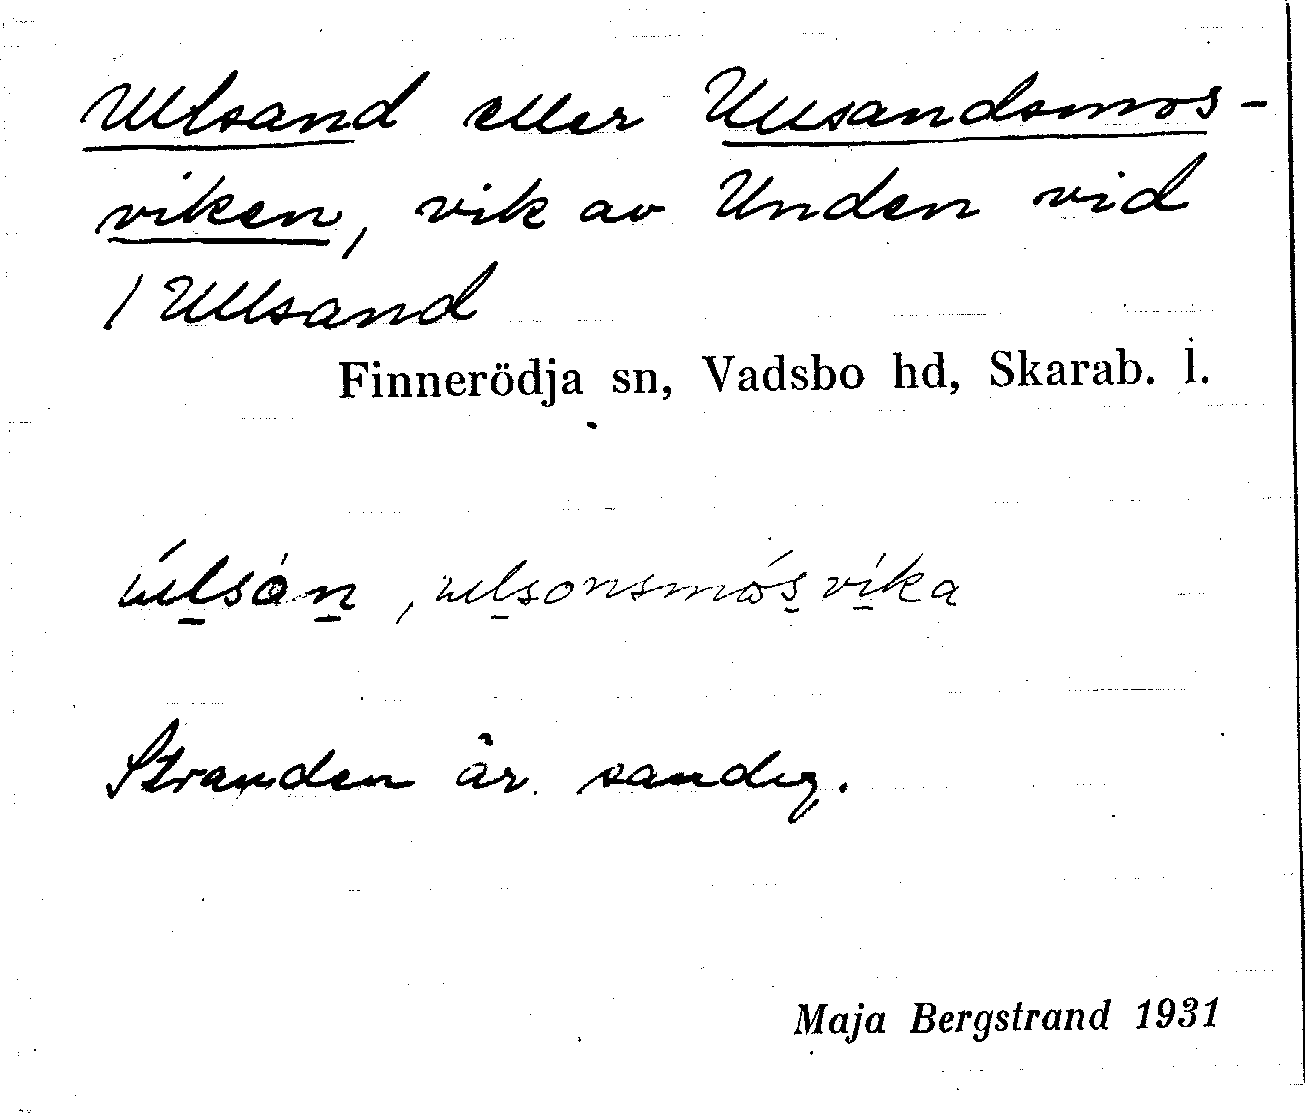 Ullsand eller Ullsandsmos-
viken, vik av Unden vid
/ Ullsand
Finnerödja sn, Vadsbo hd, Skarab. l.
úlsón, ulsonsmósvíka
Stranden är sandig.
Maja Bergstrand 1931